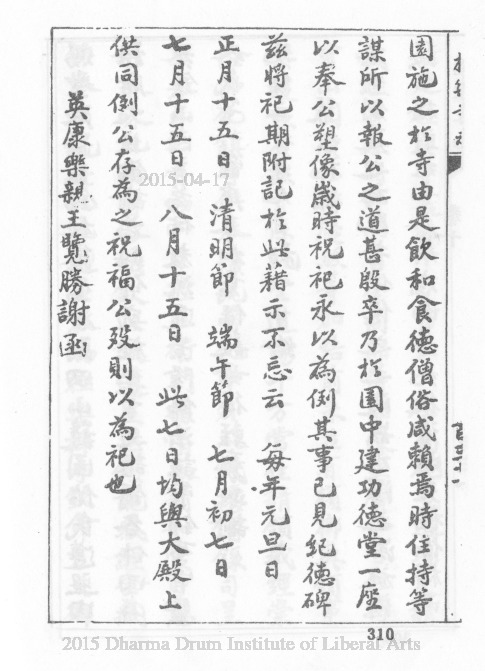 園施之於寺由是飲和食德僧俗咸賴焉時住持等
謀所以報公之道甚殷卒乃於園中建功德堂一座
以奉公塑像歲時祝祀永以為例其事已見紀德碑
茲將祀期附記於此藉示不忘云 每年元旦日
正月十五日 清明節 端午節 七月初七日
七月十五日 八月十五日 此七日均與大殿上
供同例公存為之祝福公歿則以為祀也
英康樂親王覽勝謝函
2015-04-17
310
2015 Dharma Drum Institute of Liberal Arts